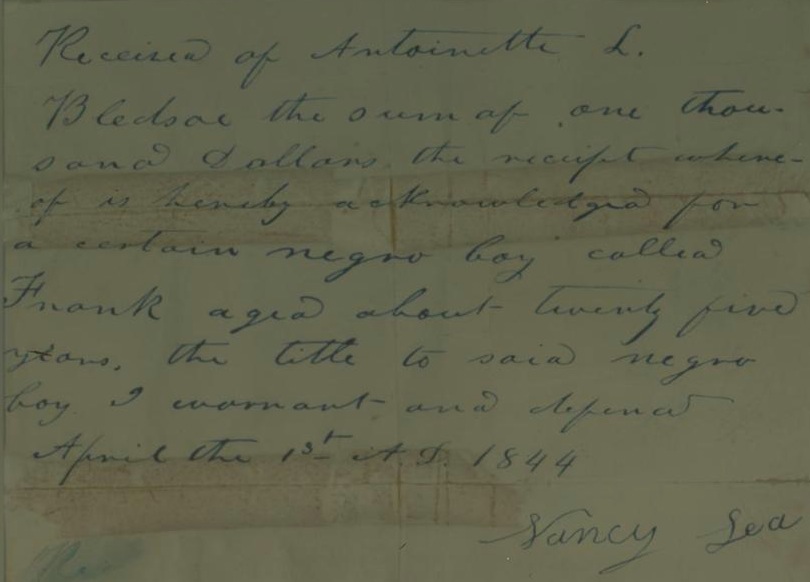 Received of Antoinette L.
Bledsoe the sum of one thou-
sand Dollars the receipt where-
of is hereby acknowledged for
a certain negro boy called
Frank aged about twenty five
years, the title to said negro
boy I warrant and defend
April the 1st A.D. 1844
Nancy Lea